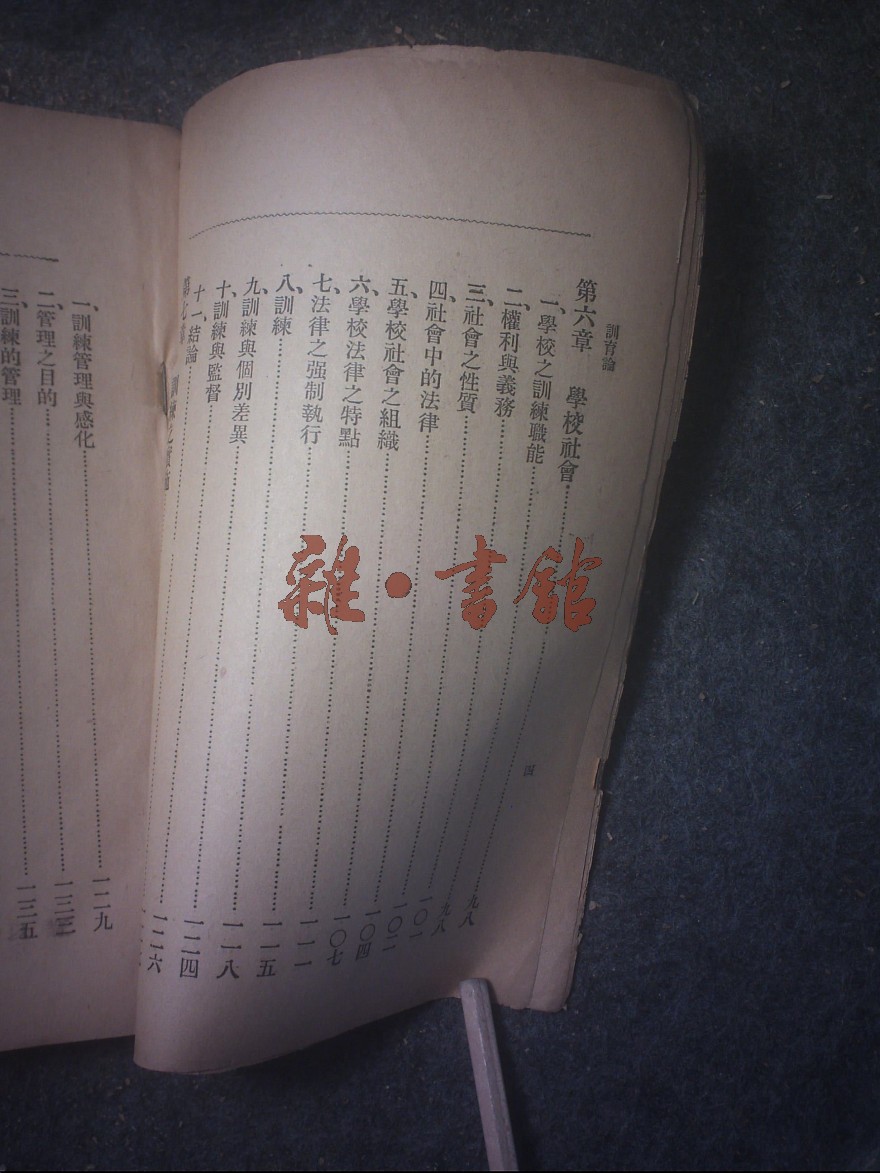 訓育論
第六章 學校社會……九八
一、學校之訓練職能……九八
二、權利與義務……一〇一
三、社會之性質……一〇二
四、社會中的法律……一〇四
五、學校社會之組織……一〇七
六、學校法律之特點……一一一
七、法律之强制執行……一一五
八、訓練……一一八
九、訓練與個別差異……一二四
十、訓練與監督……一二六
十一、結論……
第七章 訓練之實施
四
一、訓練管理與感化……一二九
二、管理之目的……一三三
三、訓練的管理……一三五
雜·書館